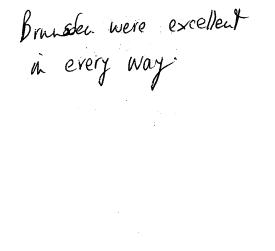 Brunsden were excellent
in every way.